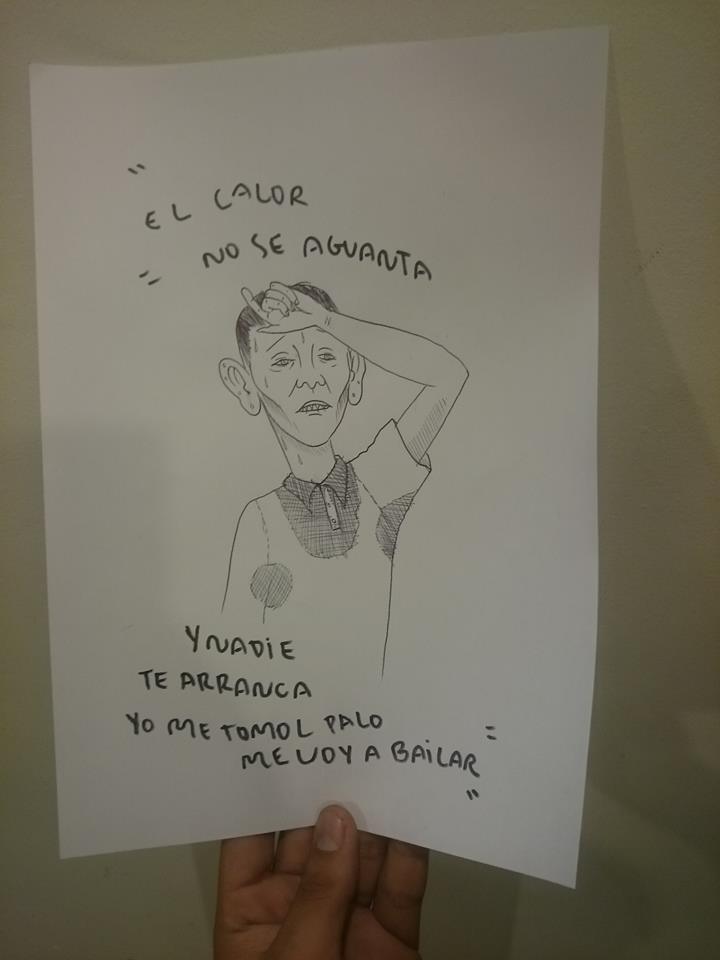 "
EL CALOR
NO SE AGUANTA
Y NADIE
TE ARRANCA
YO ME TOMOL PALO
ME VOY A BAILAR
"